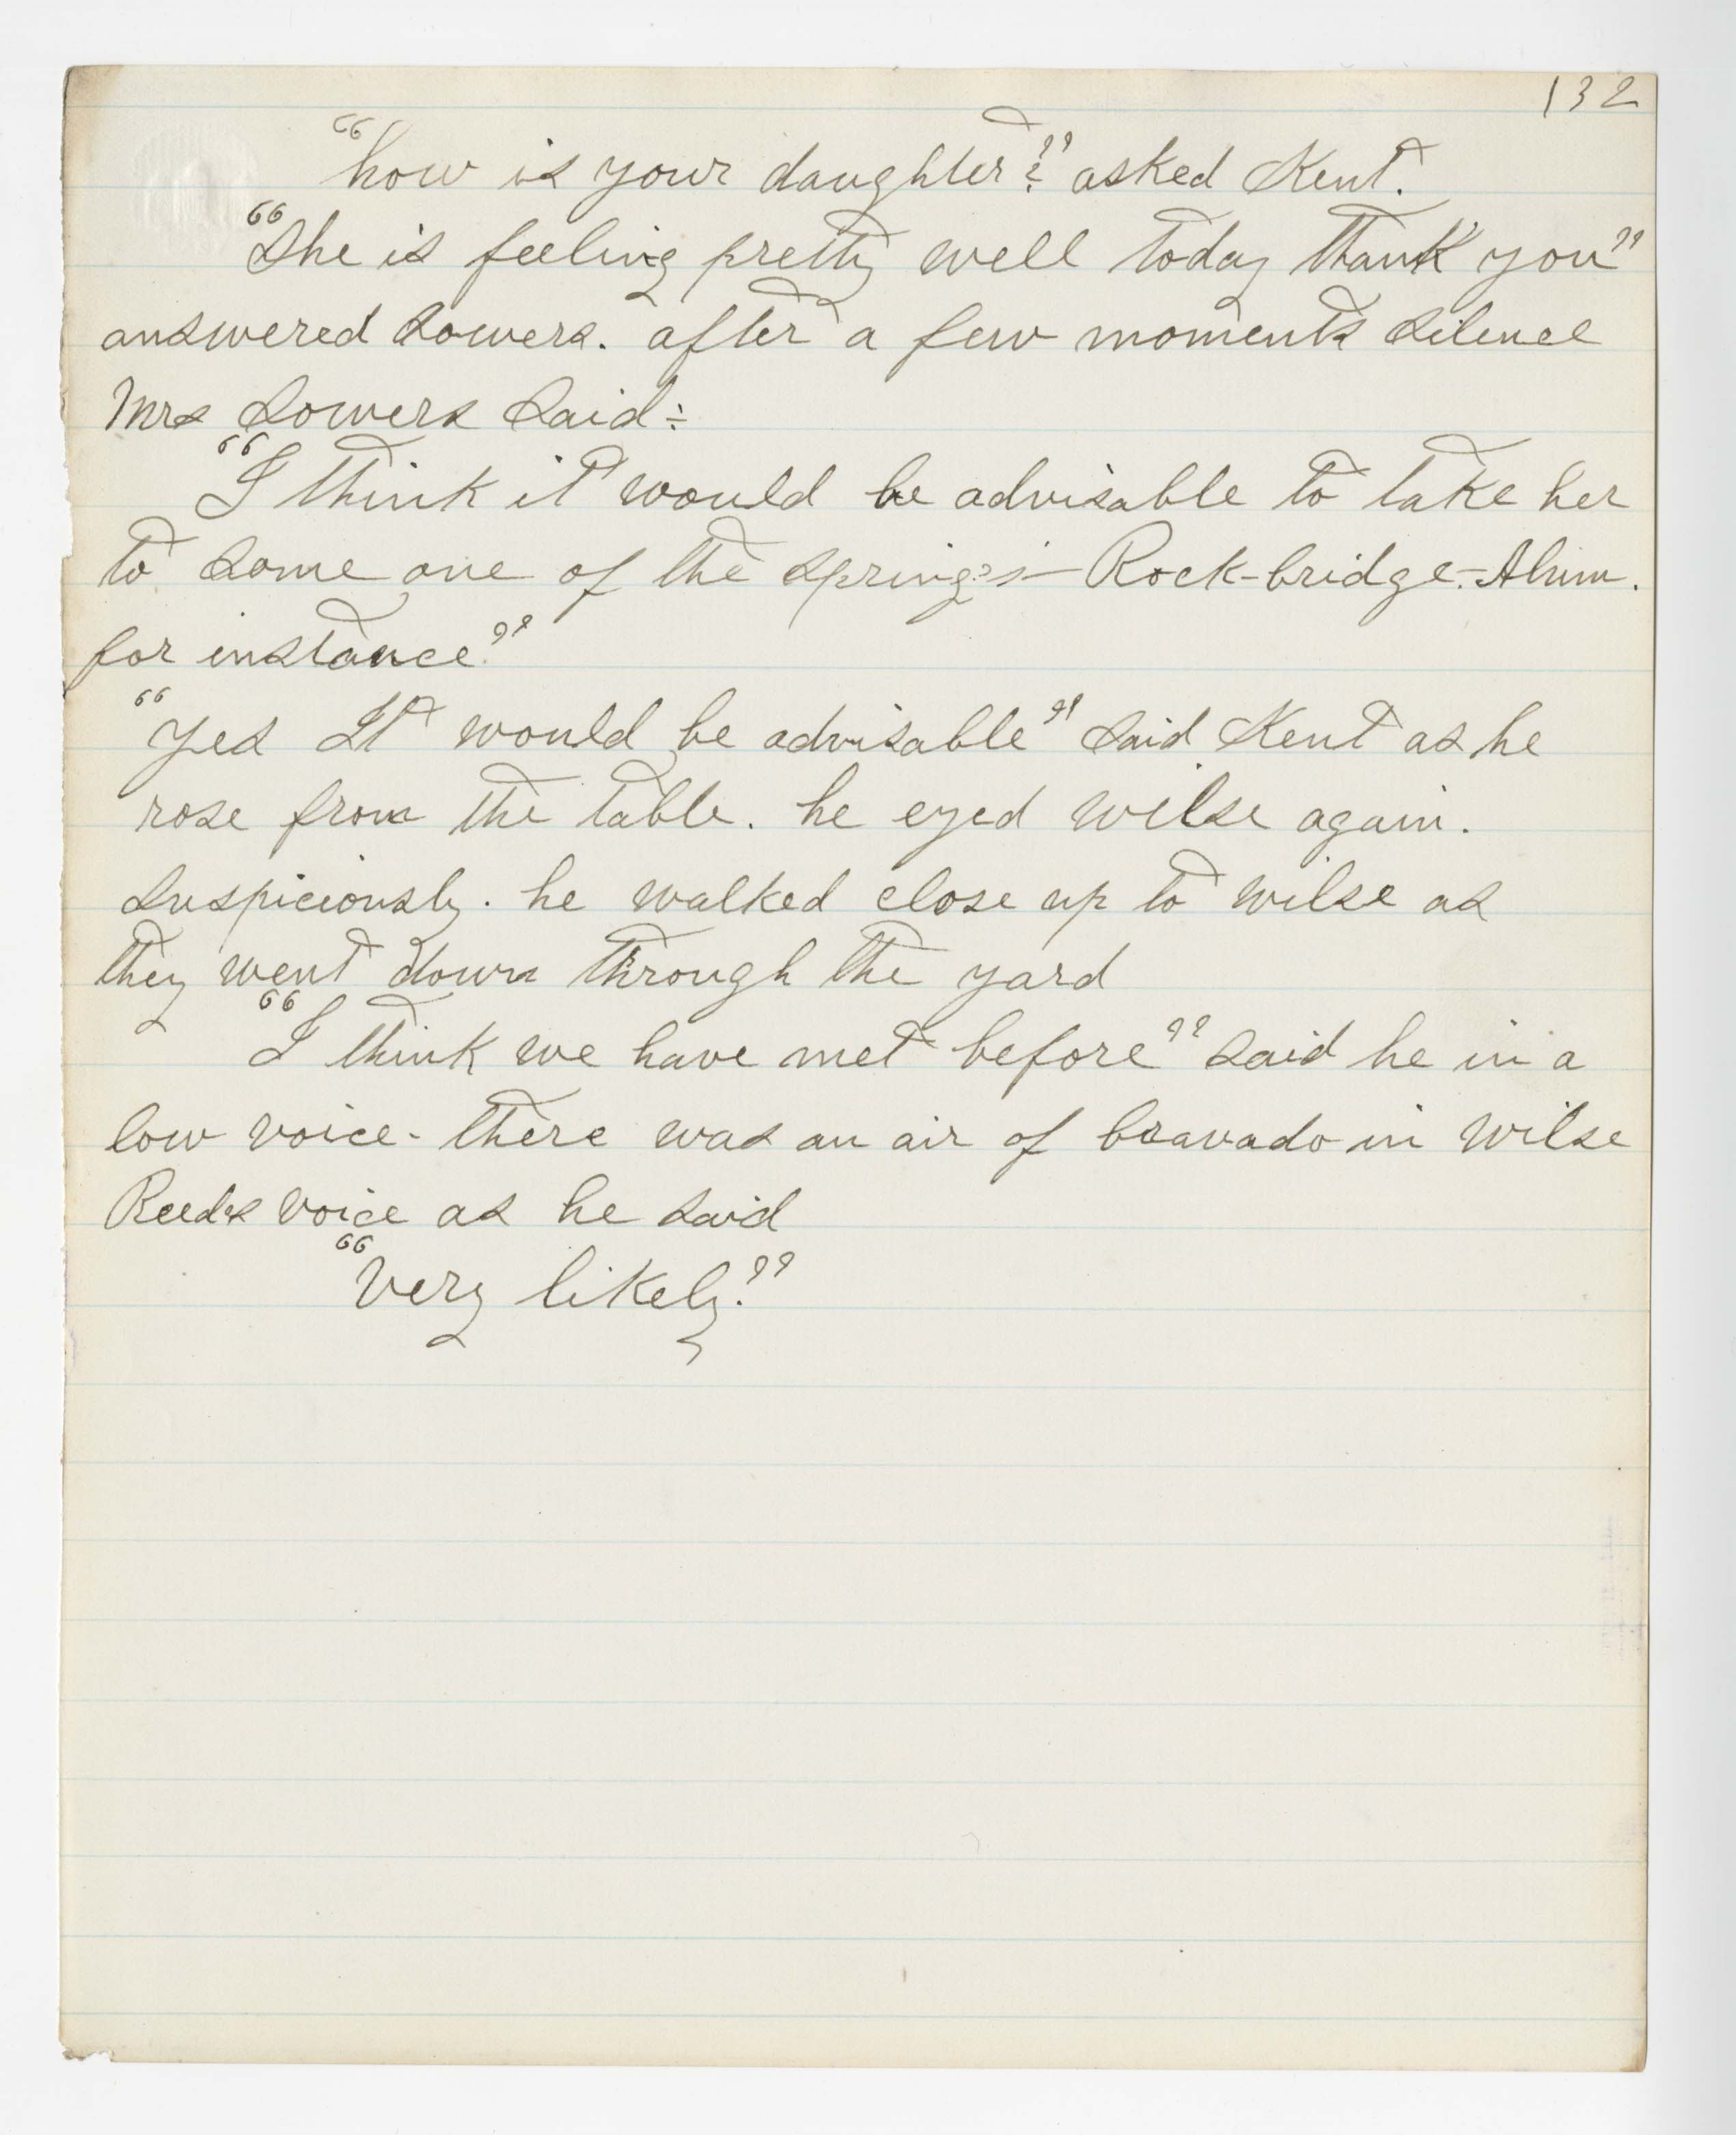 132
"how is your daughter?" asked Kent.
"She is feeling pretty well today thank you"
answered Sowers. after a few moments silence
Mrs Sowers said:
"I think it would be advisable to take her
to some one of the springs — Rock-bridge-Alum.
for instance."
"yes It would be advisable" said Kent as he
rose from the table. he eyed wilse again.
suspiciously. he walked close up to wilse as
they went down through the yard
"I think we have met before" said he in a
low voice - there was an air of bravado in wilse
Reed's voice as he said
"Very likely."